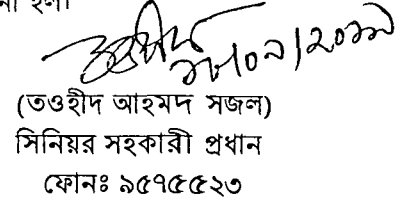 হলো
১৮/০৯/২০১৯
(তওহীদ আহমদ সজল)
সিনিয়র সহকারী প্রধান
ফোনঃ ৯৫৭৫৫২৩